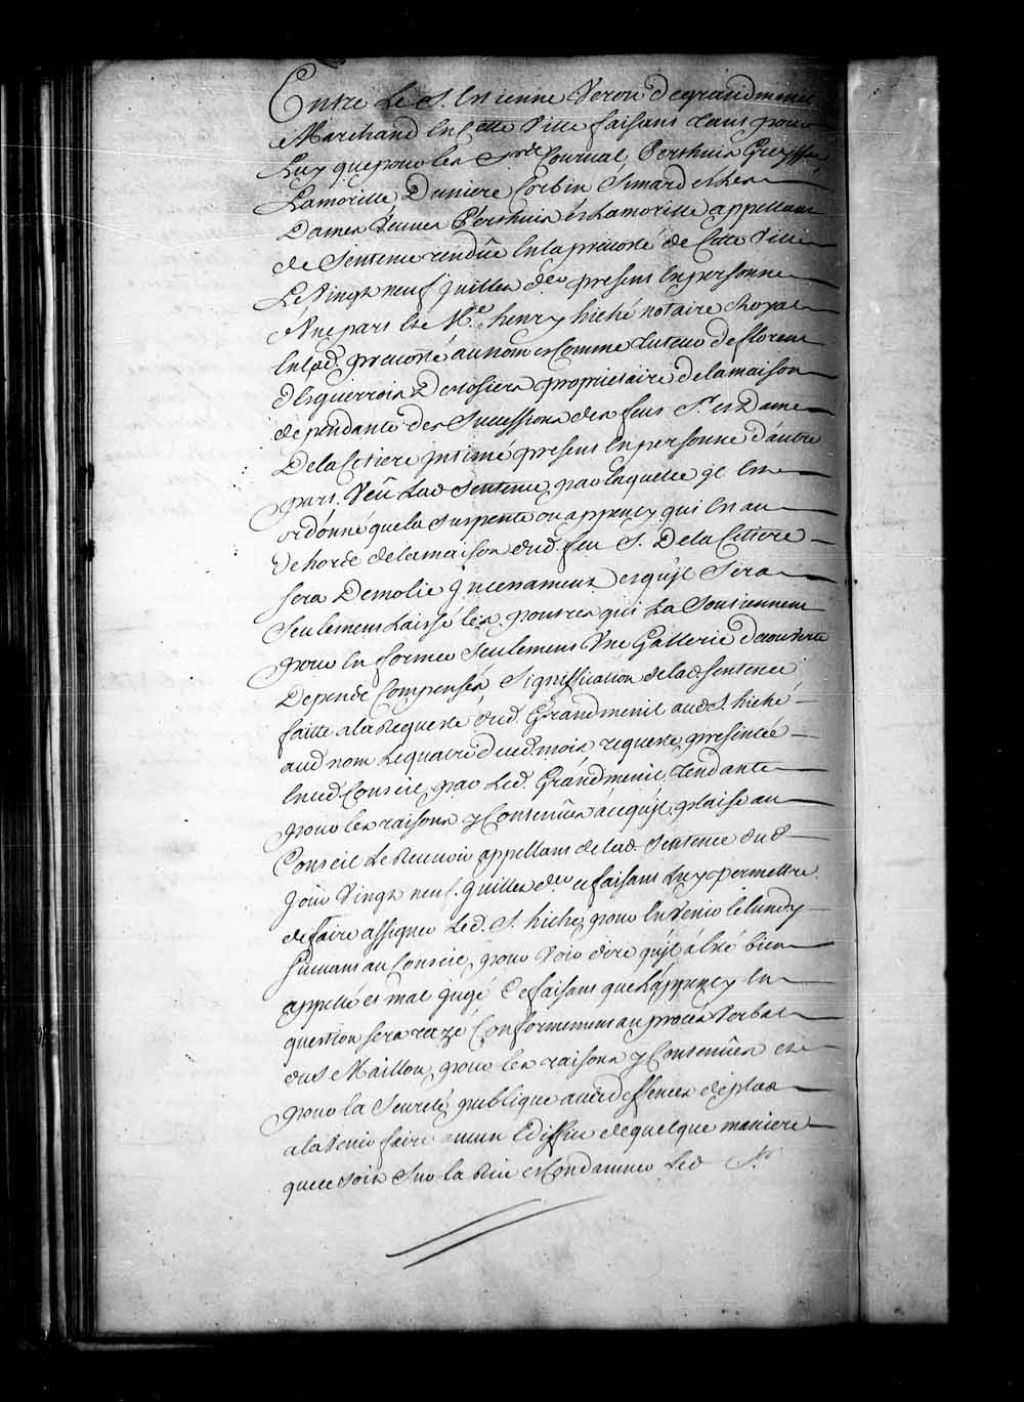 Entre Le S. Estienne Veron de grandmenil
Marchand En Cette Ville faisant tant pour
Luy que pour les Srs Cournal, Perthuis
Lamorille, Duniere Corbin Simard et Les
Dames Veuves Perthuis et Lamorille appellant
de Sentence rendüe En la prevosté de Cette Ville
Le Vingt neuf Juillet der present En personne
d'Une part Et Me. henry hiché notaire Royal
En lad. prevosté au nom et Comme tuteur de florent
proprietaire de la maison
dependante des Sucessions des feus Sr. et Dame
De la Cetiere Intimé present En personne d'autre
part. Veü Lad Sentence par laquelle Il Est
ordonné que la Suspente ou appenty qui Est au
dehors de la maison dud. feu S. De la Cetiere
sera Demolie Incessament et qu'il Sera
Seulement Laissé les poutres qui La Soutiennent
pour En former Seulement Une Gallerie decouverte
Depends Compensés, Signiffication de lad Sentence
faitte a la Requeste dud. Grandmenil aud S. hiché
aud nom Le quatre dud. mois requeste presentée
En ced. Conseil par Led. Grandmenil tendante
pour les raisons y Contenües a ce qu'il plaise au
Conseil Le Recevoir appellant de lad. Sentence dud
Jour Vingt neuf Juillet der ce faisant Luy permettre
de faire assigner Led. S. hiché pour En Venir le lundy
suivant au Conseil, pour Voir dire qu'il a Esté bien
appellé et mal jugé Ce faisant que L'appenty En
question sera razé Conformement au procès Verbal
du S Maillou, pour les raisons y Contenües et
pour la Seureté publique avec deffences de plus
a la Venir faire aucun Ediffice de quelque maniere
que ce soit Sur la Rue et Condamner Led Sr.